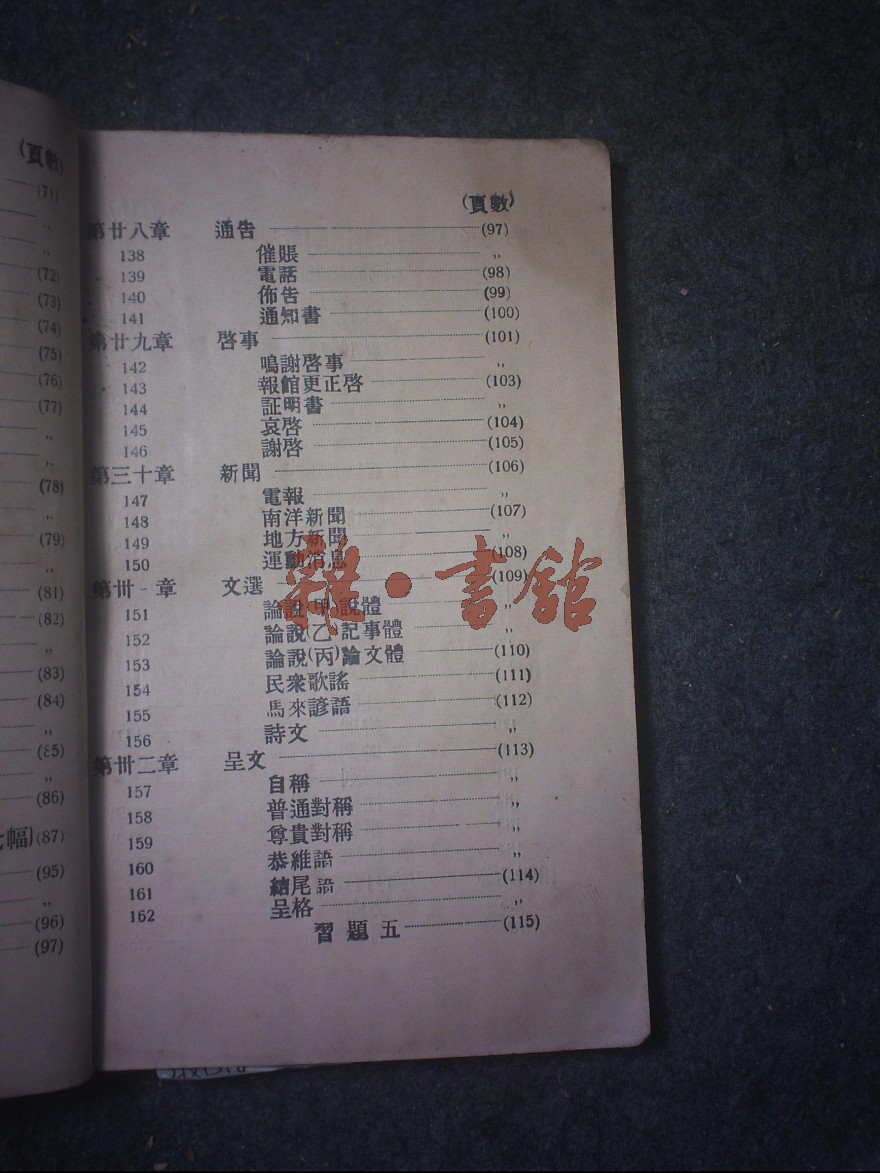 (頁數)
(71)
〃
〃
(72)
(73)
(74)
(75)
(76)
(77)
〃
〃
(78)
〃
(79)
〃
(81)
(82)
〃
(83)
(84)
〃
(85)
〃
(86)
幅) (87)
(95)
〃
(96)
(97)
(頁數)
第廿八章 通告 (97)
138 催賬 〃
139 電話 (98)
140 佈告 (99)
141 通知書 (100)
第廿九章 啓事 (101)
142 鳴謝啓事 〃
143 報館更正啓 (103)
144 証明書 〃
145 哀啓 (104)
146 謝啓 (105)
第三十章 新聞 (106)
147 電報 〃
148 南洋新聞 (107)
149 地方新聞 〃
150 運動消息 (108)
第卅一章 文选 (109)
151 論說(甲)說體 〃
152 論說(乙)記事體 〃
153 論說(丙)論文體 (110)
154 民衆歌謠 (111)
155 馬來諺語 (112)
156 詩文 〃
第卅二章 呈文 (113)
157 自稱 〃
158 普通對稱 〃
159 尊貴對稱 〃
160 恭維語 〃
161 結尾語 (114)
162 呈格 〃
習題五 (115)
雜·書館